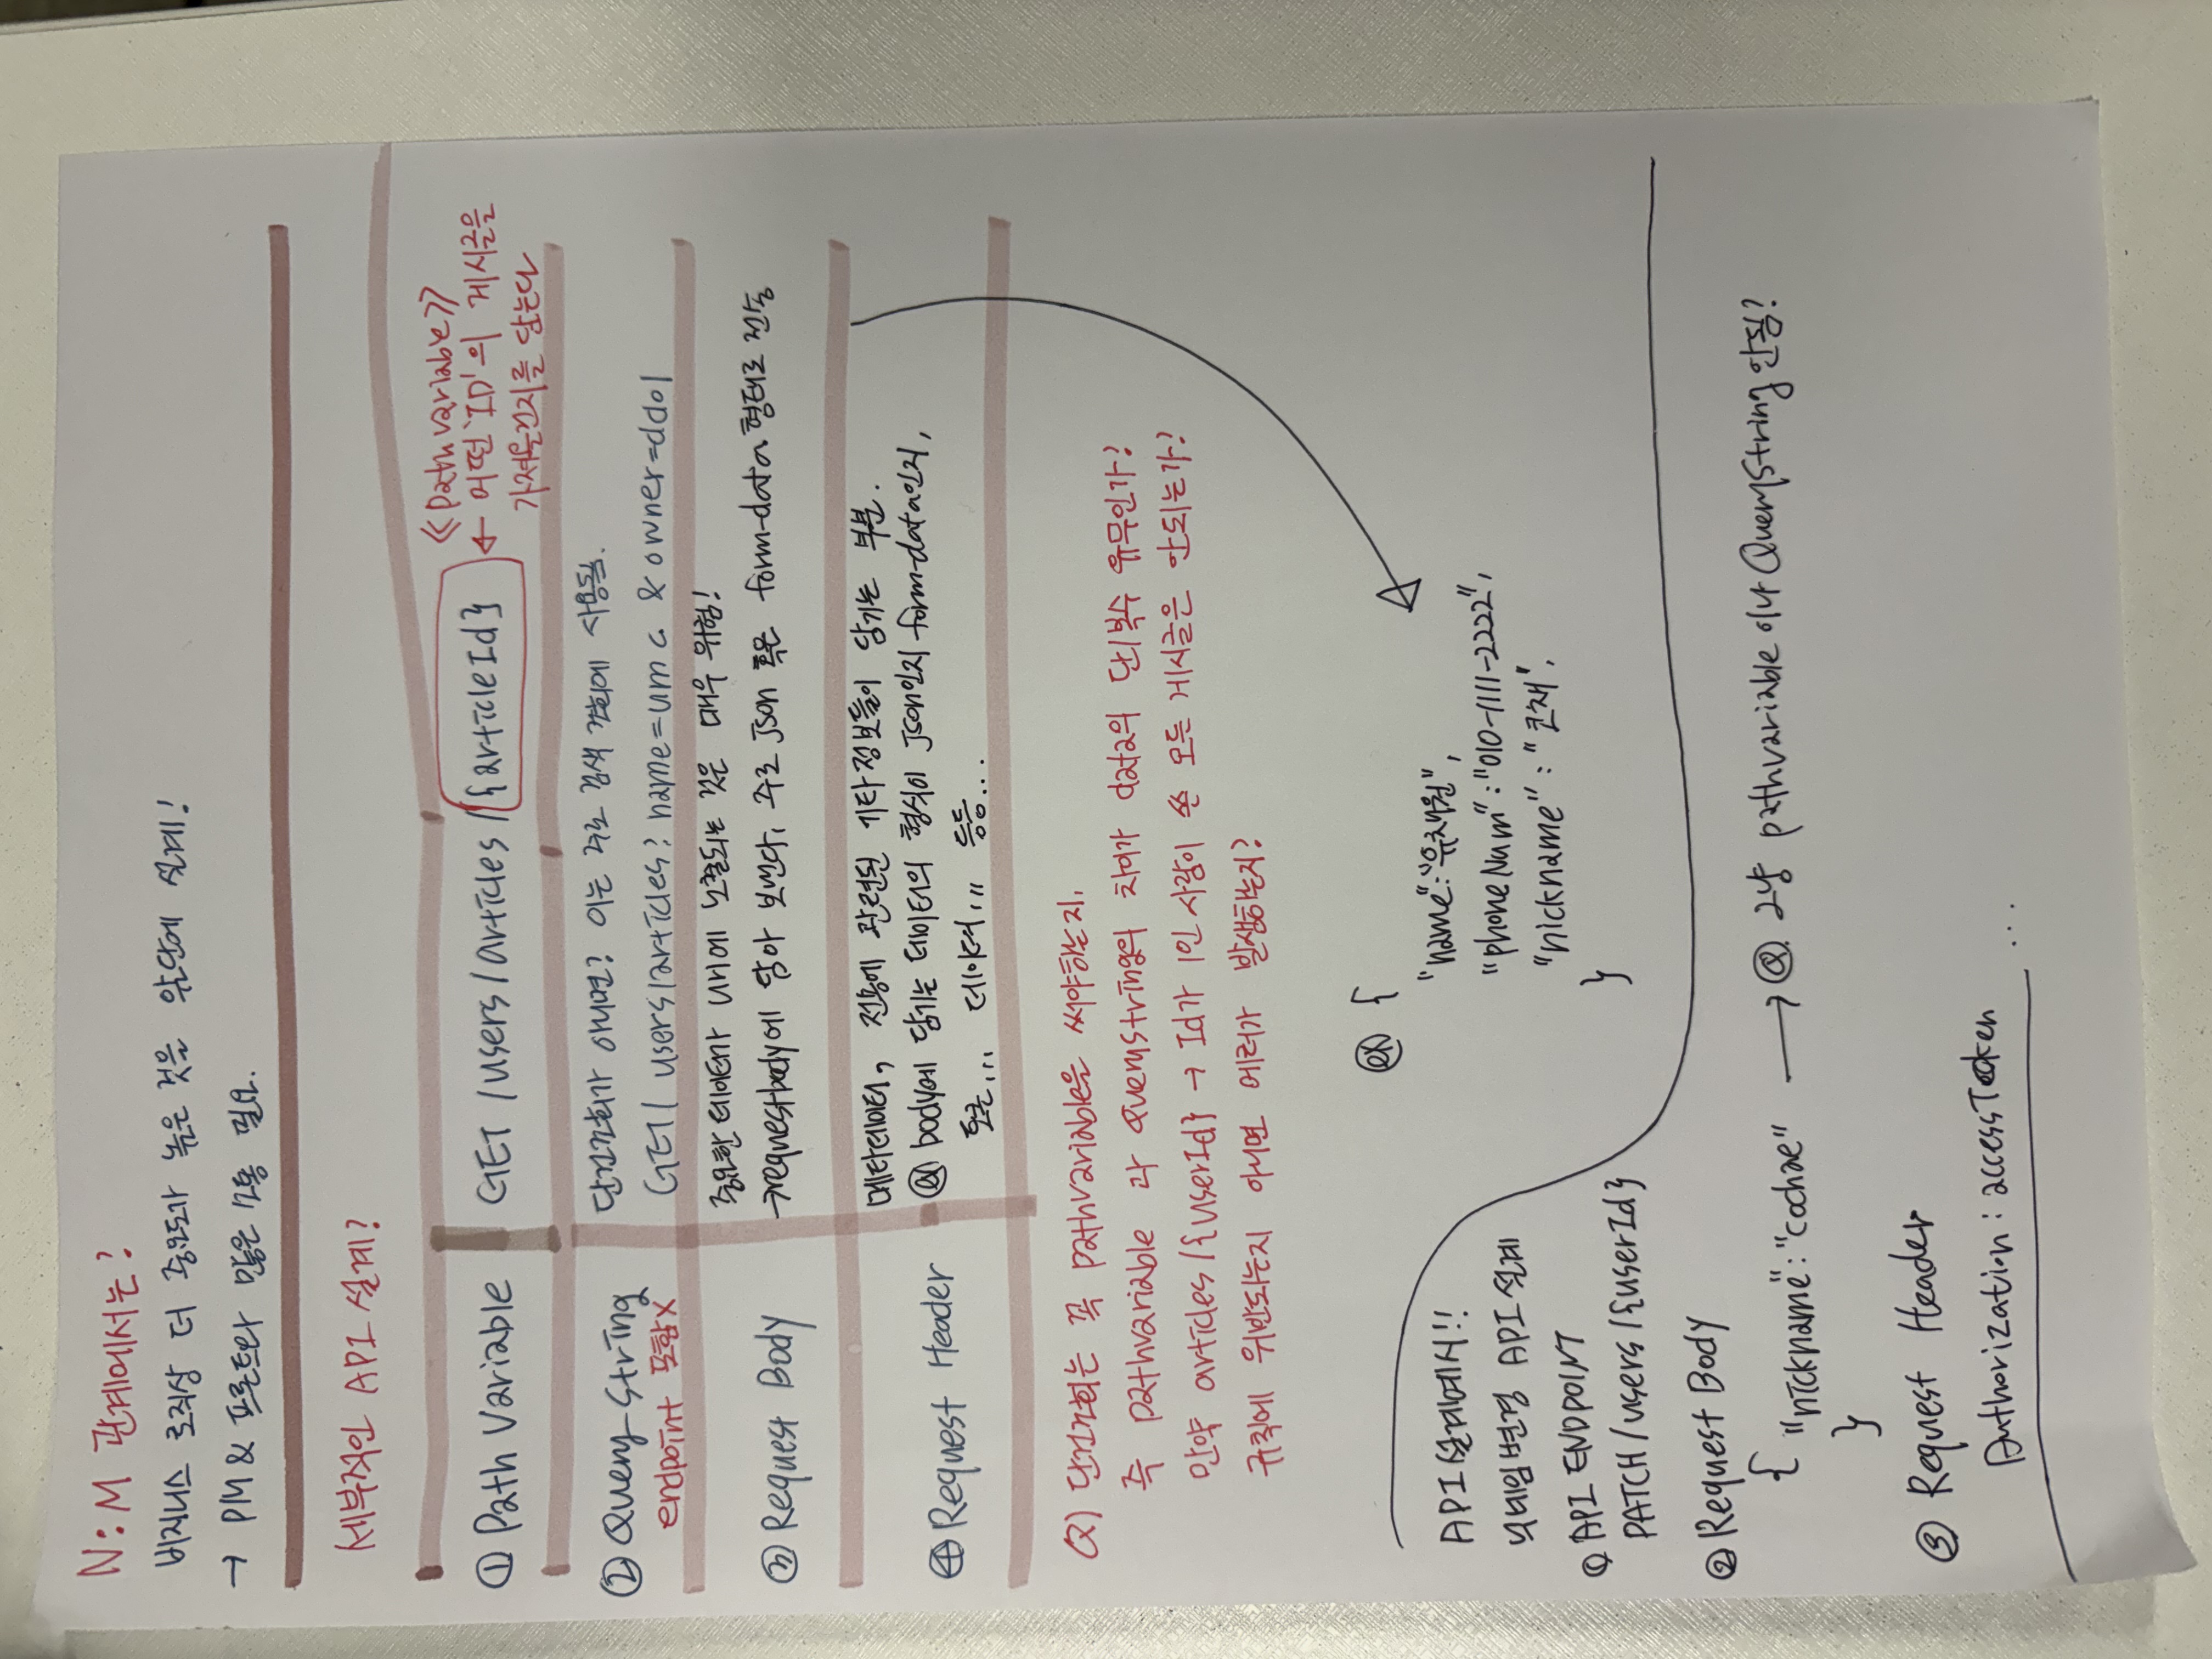 N:M 관계에서는?
비지니스 로직상 더 중요도가 높은 것을 앞단에 설계!
→ PM & 프론트와 많은 소통 필요.
세부적인 API 설계?
① Path Variable
GET /users/articles/{articleId}
<<path variable>>
← 어떤 'ID'의 게시글을
가져올건지를 담는다
② Query String
endpoint 포함x
단건조회가 아니면? 이는 주로 검색 조회에 사용됨.
GET/ users/articles? name=umc & owner=ddol
③ Request Body
중요한 데이터가 url에 노출되는 것은 매우 위험!
→requestbody에 담아 보낸다, 주로 json 혹은 form-data 형태로 전송
④ Request Header
메타데이터, 전송에 관련된 기타정보들이 담기는 부분.
ex) body에 담기는 데이터의 형식이 json인지 form-data인지,
토큰,,, 데이터,,, 등등...
Q) 단건조회는 꼭 pathvariable을 써야하는지,
즉 pathvariable 과 Querystring의 차이가 data의 단/복수 유무인가?
만약 articles/{userId} → Id가 1인 사람이 쓴 모든 게시글은 안되는가?
규칙에 위반되는지 아니면 에러가 발생하는지?
ex) {
"name":"유채원",
"phoneNum":"010-1111-2222",
"nickname" : "코채",
}
API설계예시!!
닉네임변경 API 설계
① API ENDPOINT
PATCH/users/{userId}
② Request Body
{
"nickname":"cochae" → Q. 그냥 pathvariable 이나 QueryString 안됨?
}
③ Request Header
Authorization : accessTocken ...